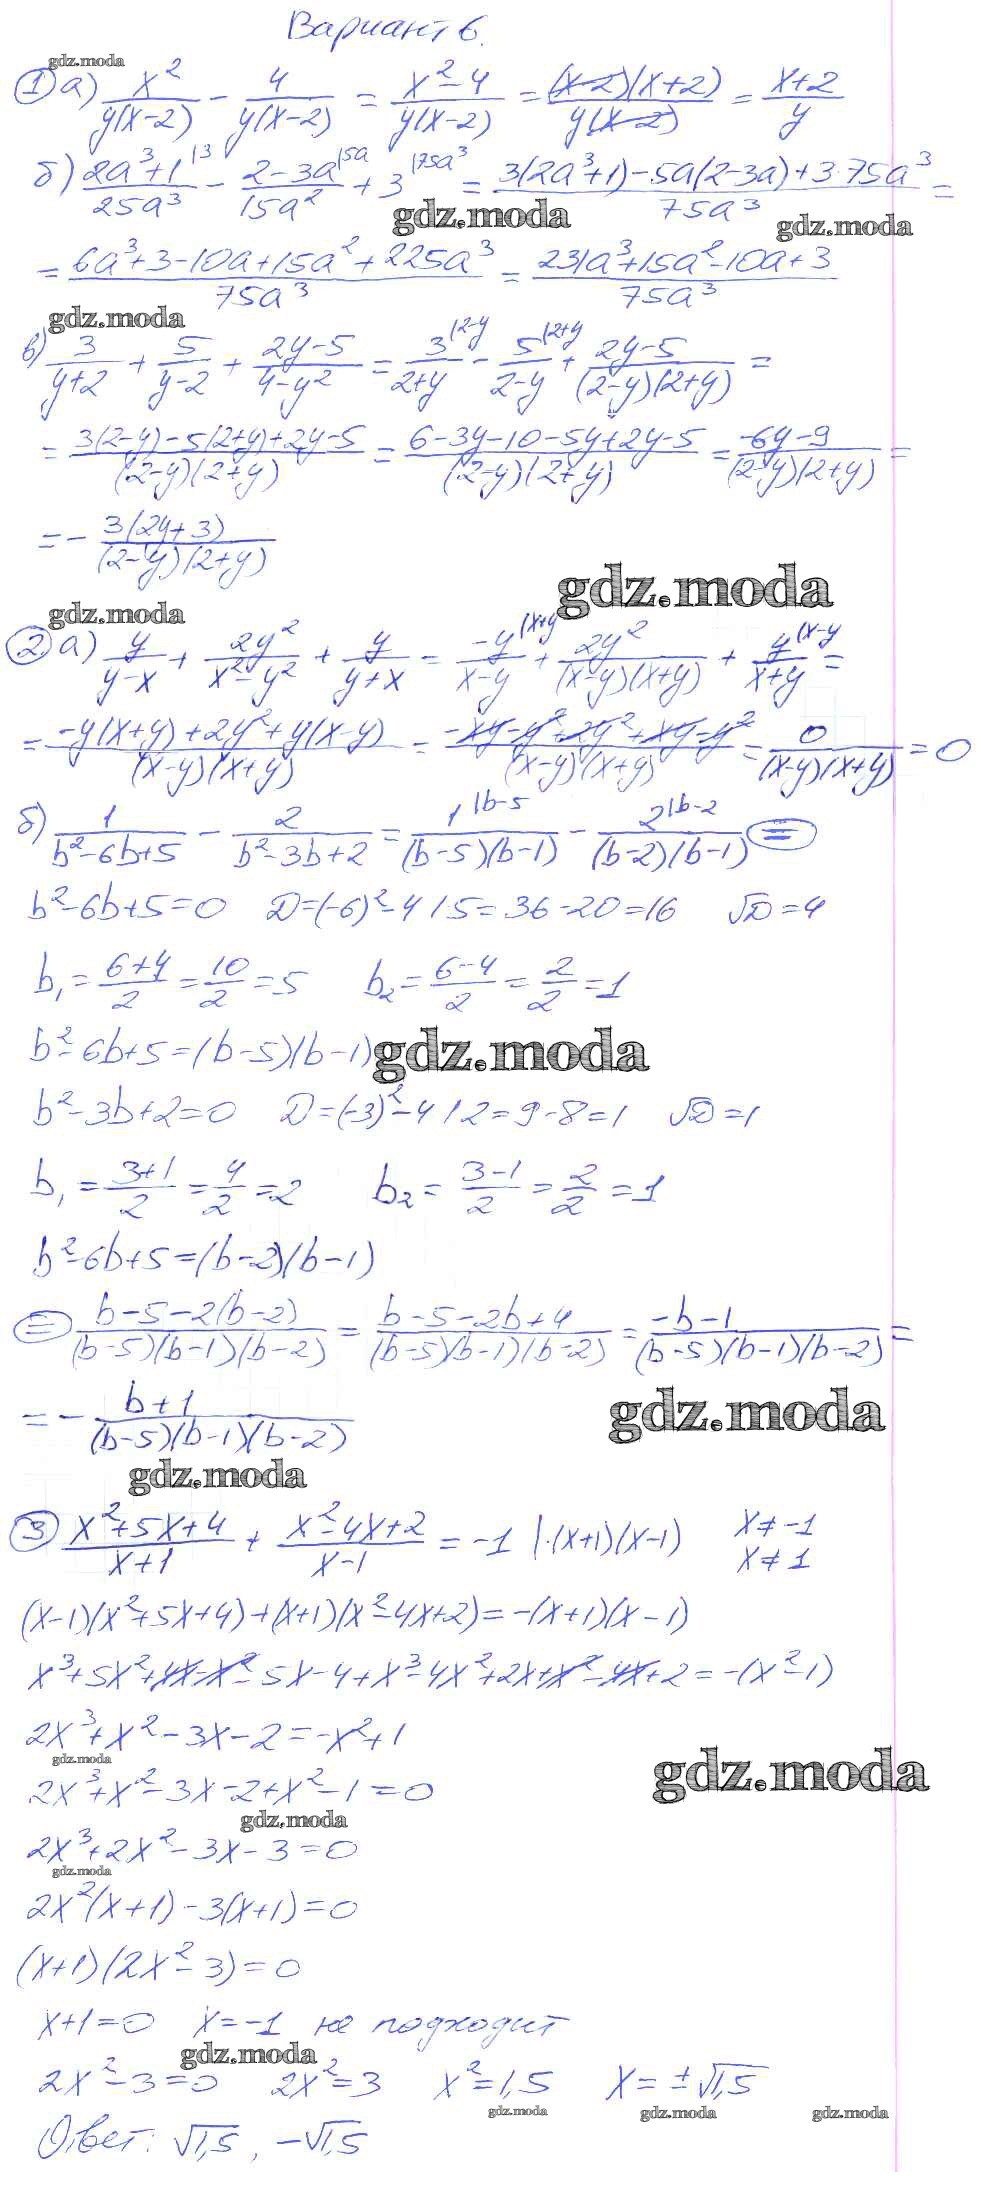 Вариант 6.
gdz.moda
① а) x²/(y(x-2)) - 4/(y(x-2)) = (x²-4)/(y(x-2)) = ((x-2)(x+2))/(y(x-2)) = (x+2)/y
б) (2a³+1)/(25a³) |3 - (2-3a)/(15a²) |5a + 3 |75a³ = (3(2a³+1)-5a(2-3a)+3·75a³)/(75a³) =
gdz.moda gdz.moda
= (6a³+3-10a+15a²+225a³)/(75a³) = (231a³+15a²-10a+3)/(75a³)
gdz.moda
в) 3/(y+2) + 5/(y-2) + (2y-5)/(4-y²) = 3/(2+y) |2-y - 5/(2-y) |2+y + (2y-5)/((2-y)(2+y)) =
= (3(2-y)-5(2+y)+2y-5)/((2-y)(2+y)) = (6-3y-10-5y+2y-5)/((2-y)(2+y)) = (-6y-9)/((2-y)(2+y)) =
= - (3(2y+3))/((2-y)(2+y))
gdz.moda gdz.moda
② а) y/(y-x) + 2y²/(x²-y²) + y/(y+x) = -y/(x-y) |x+y + 2y²/((x-y)(x+y)) + y/(x+y) |x-y =
= (-y(x+y)+2y²+y(x-y))/((x-y)(x+y)) = (-xy-y²+2y²+xy-y²)/((x-y)(x+y)) = 0/((x-y)(x+y)) = 0
б) 1/(b²-6b+5) - 2/(b²-3b+2) = 1/((b-5)(b-1)) |b-5 - 2/((b-2)(b-1)) |b-2 =
b²-6b+5=0 D=(-6)²-4·1·5=36-20=16 √D=4
b₁=(6+4)/2=10/2=5 b₂=(6-4)/2=2/2=1
b²-6b+5=(b-5)(b-1) gdz.moda
b²-3b+2=0 D=(-3)²-4·1·2=9-8=1 √D=1
b₁=(3+1)/2=4/2=2 b₂=(3-1)/2=2/2=1
b²-6b+5=(b-2)(b-1)
= (b-5-2(b-2))/((b-5)(b-1)(b-2)) = (b-5-2b+4)/((b-5)(b-1)(b-2)) = (-b-1)/((b-5)(b-1)(b-2)) =
= - (b+1)/((b-5)(b-1)(b-2))
gdz.moda
gdz.moda
③ (x²+5x+4)/(x+1) + (x²-4x+2)/(x-1) = -1 |·(x+1)(x-1) x≠-1
x≠1
(x-1)(x²+5x+4)+(x+1)(x²-4x+2)=-(x+1)(x-1)
x³+5x²+4x-x²-5x-4+x³-4x²+2x+x²-4x+2=-(x²-1)
2x³+x²-3x-2=-x²+1
gdz.moda gdz.moda
2x³+x²-3x-2+x²-1=0
gdz.moda
2x³+2x²-3x-3=0
gdz.moda
2x²(x+1)-3(x+1)=0
(x+1)(2x²-3)=0
x+1=0 x=-1 не подходит
gdz.moda
2x²-3=0 2x²=3 x²=1,5 x=±√1,5
gdz.moda gdz.moda gdz.moda
Ответ: √1,5, -√1,5